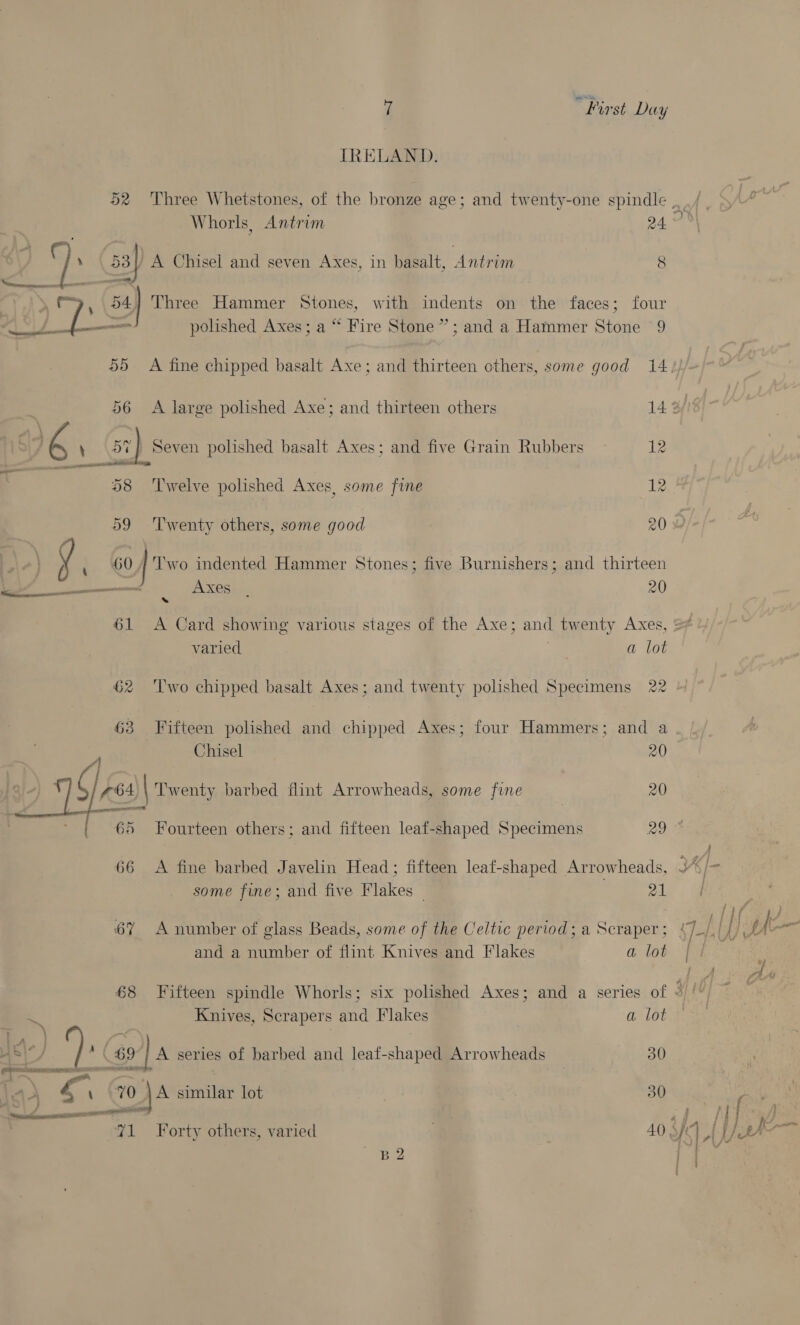 7 First Day
IRELAND.
52 Three Whetstones, of the bronze age; and twenty-one spindle
Whorls, Antrim 24
53 A Chisel and seven Axes, in basalt, Antrim 8
54 Three Hammer Stones, with indents on the faces; four
polished Axes; a “ Fire Stone ”; and a Hammer Stone 9
55 A fine chipped basalt Axe; and thirteen others, some good 14
56 A large polished Axe; and thirteen others 14
57 Seven polished basalt Axes; and five Grain Rubbers 12
58 Twelve polished Axes, some fine 12
59 Twenty others, some good 20
60 Two indented Hammer Stones; five Burnishers; and thirteen
Axes 20
61 A Card showing various stages of the Axe; and twenty Axes,
varied a lot
62 Two chipped basalt Axes; and twenty polished Specimens 22
63 Fifteen polished and chipped Axes; four Hammers; and a
Chisel 20
64 Twenty barbed flint Arrowheads, some fine 20
65 Fourteen others; and fifteen leaf-shaped Specimens 29
66 A fine barbed Javelin Head; fifteen leaf-shaped Arrowheads,
some fine; and five Flakes 21
67 A number of glass Beads, some of the Celtic period; a Scraper;
and a number of flint Knives and Flakes a lot
68 Fifteen spindle Whorls; six polished Axes; and a series of
Knives, Scrapers and Flakes a lot
69 A series of barbed and leaf-shaped Arrowheads 30
70 A similar lot 30
71 Forty others, varied 40
B 2